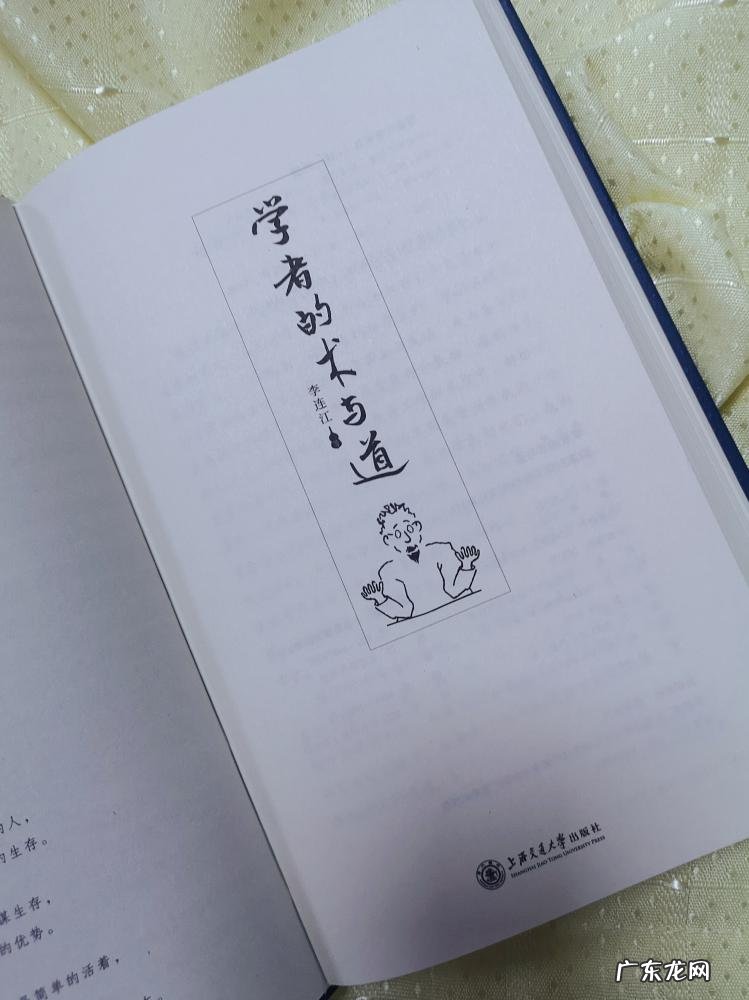 人，
生存。
谋生存，
的优势。
简单的活着，
学者的术与道
李连江
上海交通大学出版社
SHANGHAI JIAO TONG UNIVERSITY PRESS
广东龙网